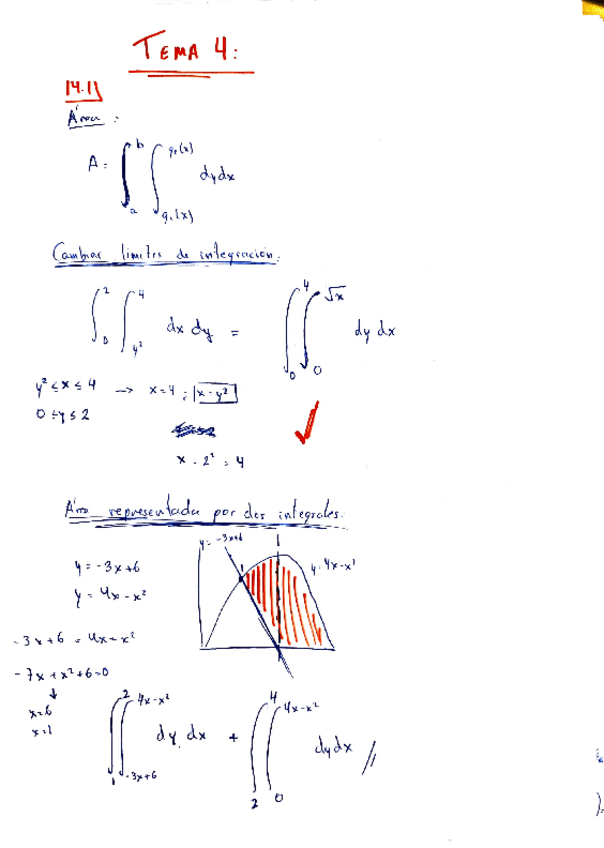 TEMA 4:
14.1)
Área:
A = ∫_a^b ∫_{g₁(x)}^{g₂(x)} dy dx
Cambiar limites de integración:
∫_0^2 ∫_{y²}^4 dx dy = ∫_0^4 ∫_0^{√x} dy dx
y² ≤ x ≤ 4 → x = 4 ; x = y²
0 ≤ y ≤ 2
✓
x = 2² = 4
Área representada por dos integrales:
y = -3x+6
y = -3x+6
y = 4x-x²
y = 4x-x²
-3x+6 = 4x-x²
-7x+x²+6=0
↓
x=6
x=1
∫_1^2 ∫_{-3x+6}^{4x-x²} dy dx + ∫_2^4 ∫_0^{4x-x²} dy dx //